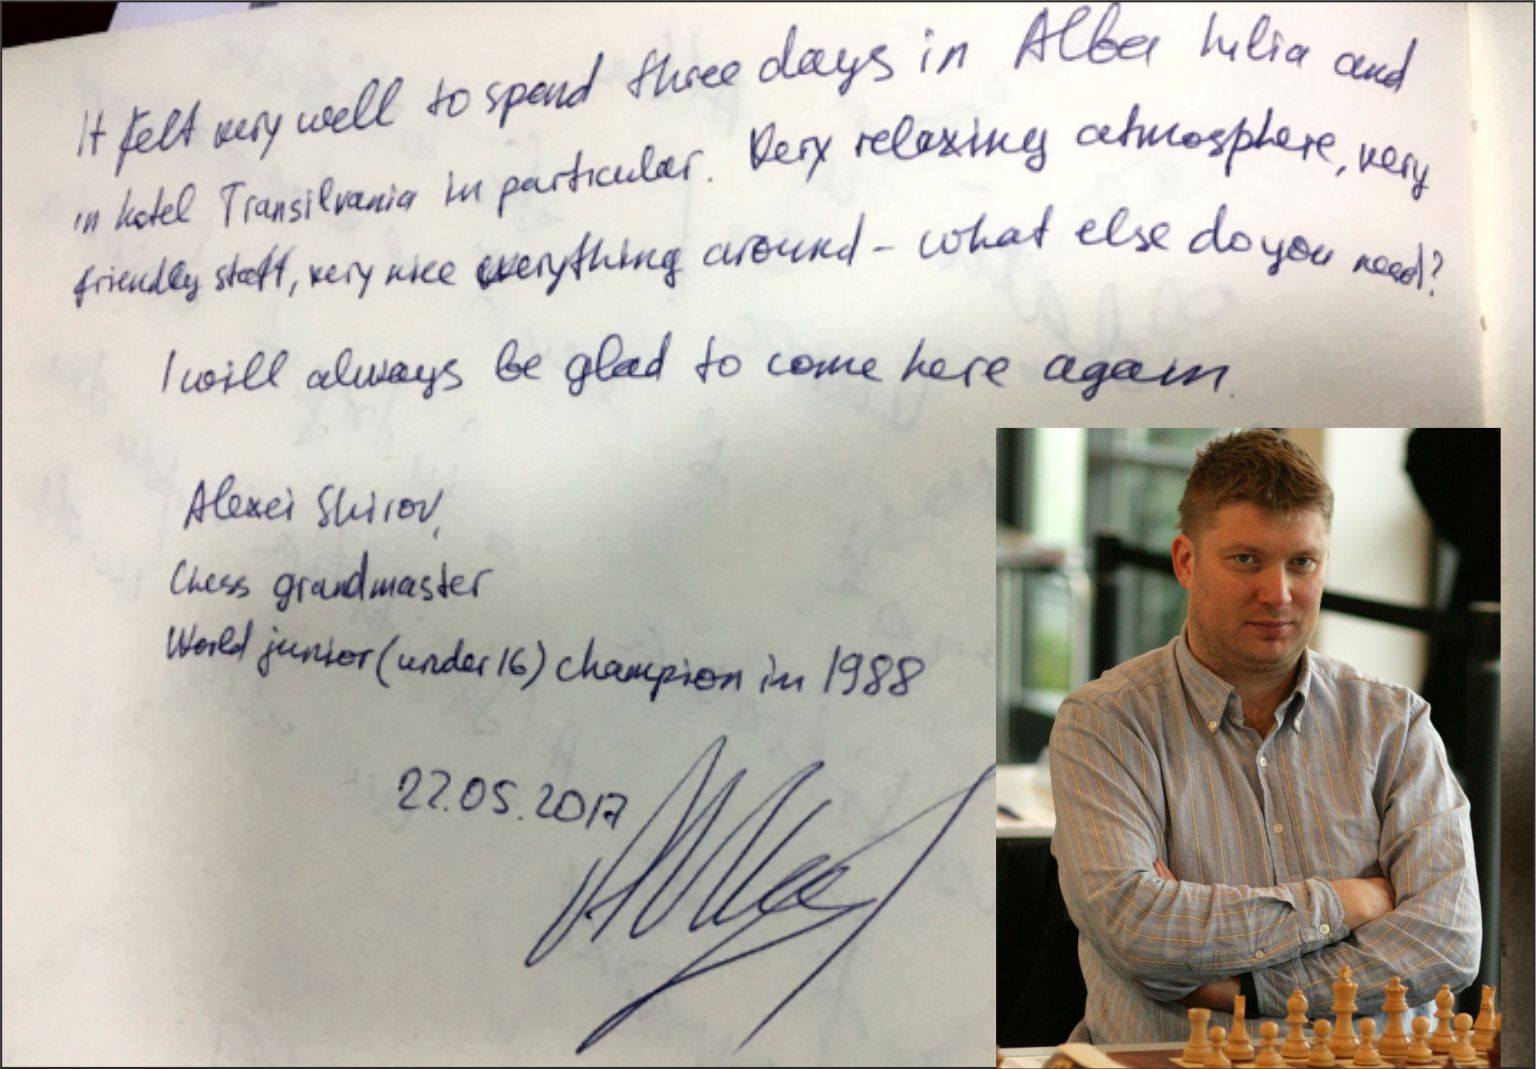 It felt very well to spend three days in Alba Iulia and
in hotel Transilvania in particular. Very relaxing atmosphere, very
friendly staff, very nice everything around – what else do you need?
I will always be glad to come here again.
Alexei Shirov,
Chess grandmaster
World junior (under 16) champion in 1988
22.05.2017